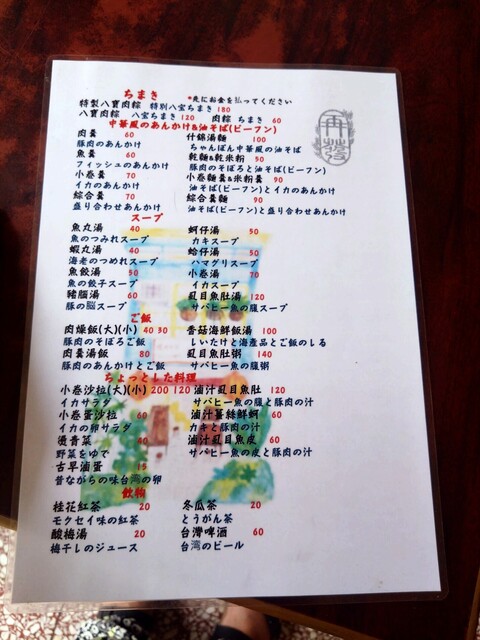 ちまき *先にお金を払ってください
特製八寶肉粽 特別八宝ちまき 180
八寶肉粽 八宝ちまき 120 肉粽 ちまき 60
中華風のあんかけ&油そば(ビーフン)
肉羹 70 什錦湯麵 100
豚肉のあんかけ ちゃんぽん中華風の油そば
魚羹 60 乾麵&乾米粉 50
フィッシュのあんかけ 豚肉のそぼろと油そば(ビーフン)
小卷羹 70 小卷麵羹&米粉羹 90
イカのあんかけ 油そば(ビーフン)とイカのあんかけ
綜合羹 70 綜合羹麵 90
盛り合わせあんかけ 油そば(ビーフン)と盛り合わせあんかけ
スープ
魚丸湯 40 蚵仔湯 50
魚のつみれスープ カキスープ
蝦丸湯 40 蛤仔湯 50
海老のつめれスープ ハマグリスープ
魚餃湯 50 小卷湯 70
魚の餃子スープ イカスープ
豬腦湯 60 虱目魚肚湯 120
豚の脳スープ サバヒー魚の腹スープ
ご飯
肉燥飯(大)(小) 40 30 香菇海鮮飯湯 100
豚肉のそぼろご飯 しいたけと海産品とご飯のしる
肉羹湯飯 80 虱目魚肚粥 140
豚肉のあんかけとご飯 サバヒー魚の腹粥
ちょっとした料理
小卷沙拉(大)(小) 200 120 滷汁虱目魚肚 120
イカサラダ サバヒー魚の腹と豚肉の汁
小卷蛋沙拉 60 滷汁蔭絲鮮蚵 60
イカの卵サラダ カキと豚肉の汁
燙青菜 40 滷汁虱目魚皮 60
野菜をゆで サバヒー魚の皮と豚肉の汁
古早滷蛋 15
昔ながらの味台湾の卵
飲物
桂花紅茶 20 冬瓜茶 20
モクセイ味の紅茶 とうがん茶
酸梅湯 20 台灣啤酒 60
梅干しのジュース 台湾のビール